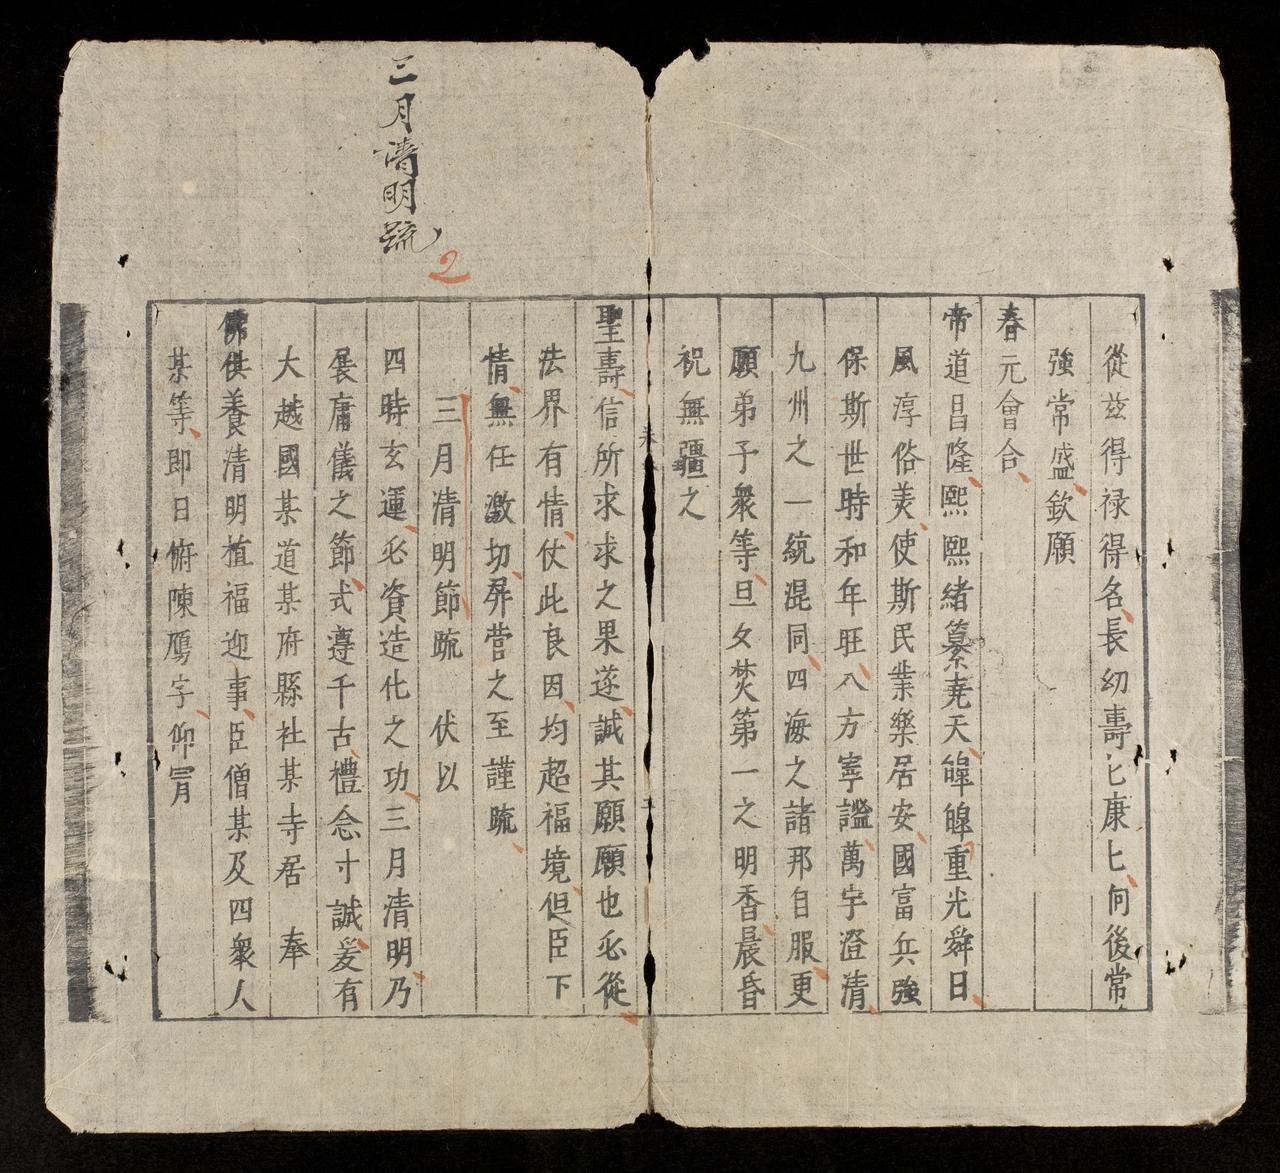 從兹得禄得名長幼壽匕康匕何後常
強常盛欽願
春元會合
帝道昌隆熙熙緒纂堯天皥皥重光舜日
風淳俗美使斯民業樂居安國富兵強
保斯世時和年旺八方寧謐萬宇澄清
九州之一統混同四海之諸邢自服更
願弟子衆等旦夕焚第一之明香晨昏
祝無疆之
聖壽信所求求之果遂誠其願願也必從
法界有情仗此良因均超福境但臣下
情無任激切屏营之至謹疏
三月清明節疏 伏以
四時玄運必資造化之功三月清明乃
展庸儀之節式遵千古禮念寸誠爰有
大越國某道某府縣社某寺居 奉
佛供養清明植福迎事臣僧某及四衆人
某等即日俯陳鴈字仰冐
三月清明疏
2